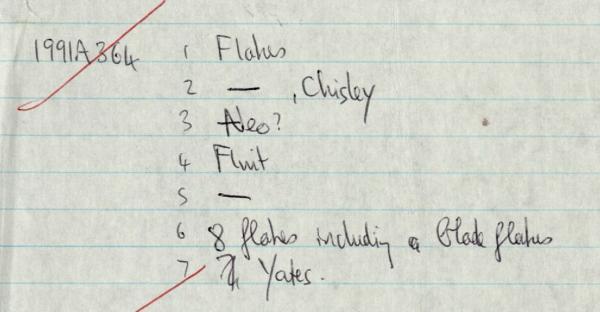 1991A364 1 Flakes
2 — , Chisley
3 Neo?
4 Flint
5 —
6 8 flakes including a Blade flakes
7 Yates.